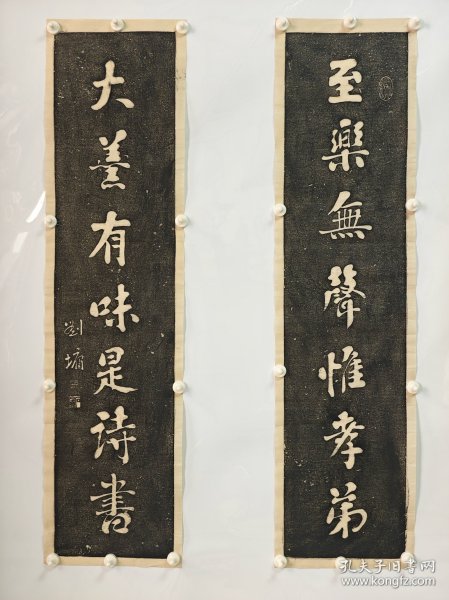 至樂無聲惟孝弟
大羹有味是詩書
劉墉
孔夫子旧书网
www.kongfz.com